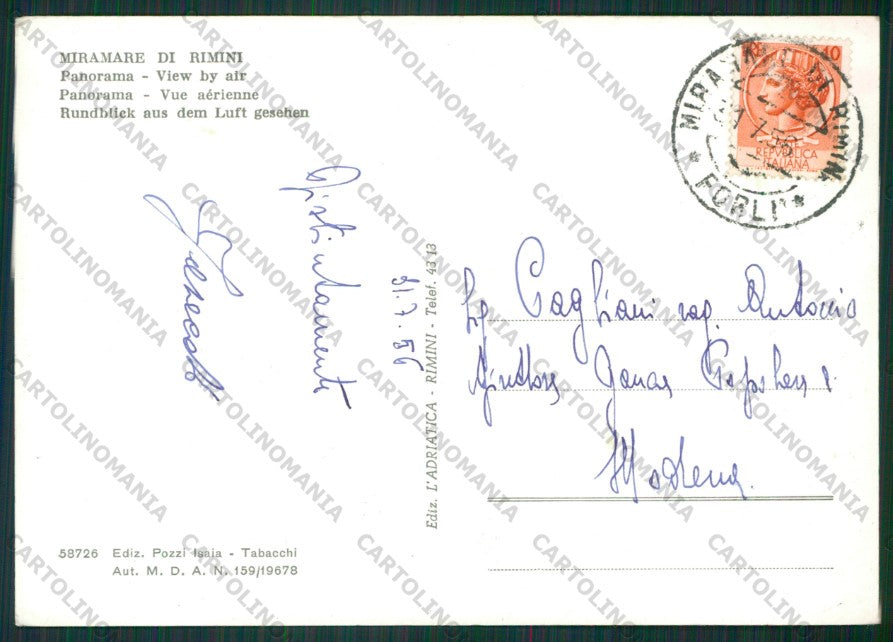 MIRAMARE DI RIMINI
Panorama - View by air
Panorama - Vue aérienne
Rundblick aus dem Luft gesehen
Distintamente
31.7.56
Ediz. L'ADRIATICA - RIMINI - Telef. 43 13
58726 Ediz. Pozzi Isaia - Tabacchi
Aut. M. D. A. N. 159/19678
10
REPVBBLICA
ITALIANA
MIRAMARE DI RIMINI
7.56
* FORLI' *
Sig. Pagliani rag. Antonio
Modena
CARTOLINOMANIA